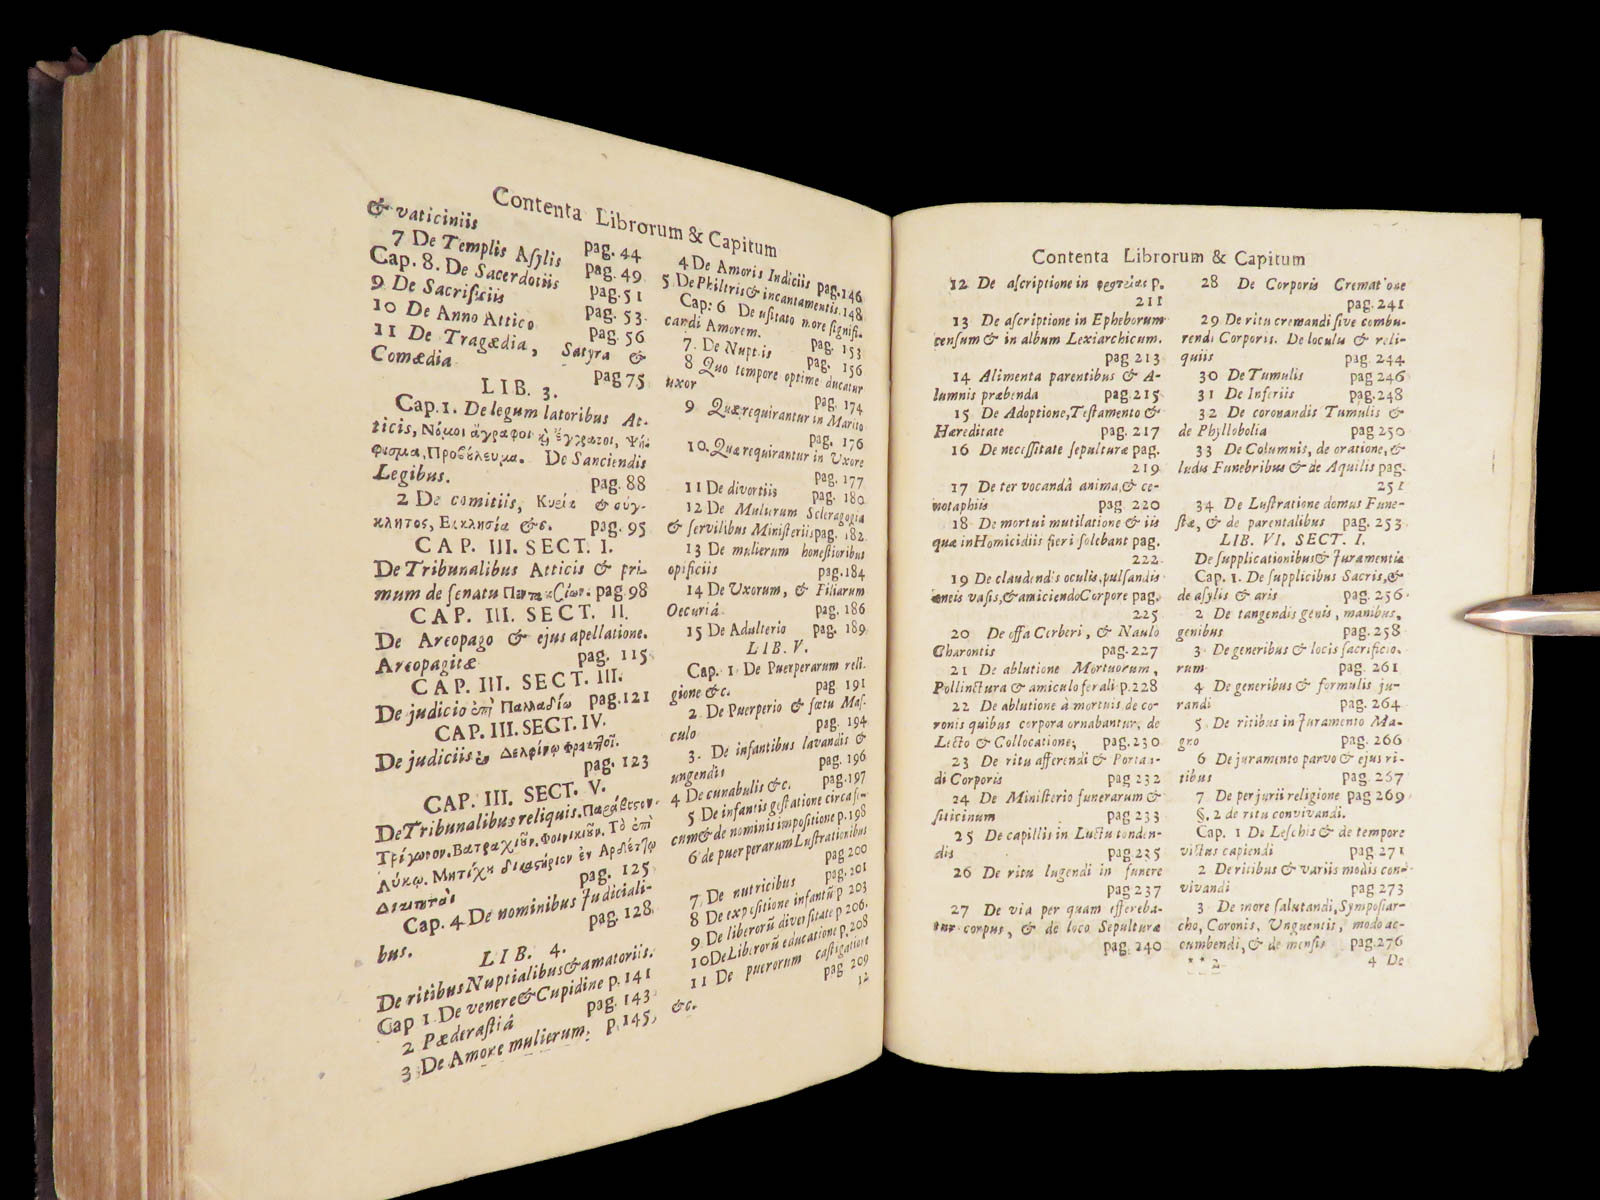 Contenta Librorum & Capitum
& vaticiniis pag. 44
7 De Templis Aſylis pag. 49
Cap. 8. De Sacerdotiis pag. 51
9 De Sacrificiis pag. 53
10 De Anno Attico pag. 56
11 De Tragædia, Satyra &
Comœdia pag 75
LIB. 3.
Cap. 1. De legum latoribus At-
ticis, Νόμοι ἄγραφοι
De Sanciendis
Legibus. pag. 88
2 De comitiis, & σύγ-
κλητος, Εκκλησία &c. pag. 95
CAP. III. SECT. I.
De Tribunalibus Atticis & pri-
mum de ſenatu pag. 98
CAP. III. SECT. II.
De Areopago & ejus apellatione.
Areopagitæ pag. 115
CAP. III. SECT. III.
De judicio ἐπὶ Παλλαδίω pag. 121
CAP. III. SECT. IV.
De judiciis
pag. 123
CAP. III. SECT. V.
De Tribunalibus reliquis.
Τρίγωνον. Τὸ ἐπὶ
Λύκω.
pag. 125
Cap. 4 De nominibus Judiciali-
bus. pag. 128
LIB. 4.
De ritibus Nuptialibus & amatoriis.
Cap 1 De venere & Cupidine p. 141
2 Pæderaſtiâ pag. 143
3 De Amore mulierum. p. 145, &c.
4 De Amoris Indiciis pag. 146
5 De Philtris & incantamentis. 148
Cap: 6 De uſitato more ſignifi-
candi Amorem. pag. 153
7. De Nuptiis pag. 156
8 Quo tempore optime ducatur
uxor pag. 174
9 Quæ requirantur in Marito
pag. 176
10. Quæ requirantur in Uxore
pag. 177
11 De divortiis pag. 180
12 De Mulierum Scleragogia
& ſervilibus Miniſteriis pag. 182
13 De mulierum honeſtioribus
opificiis pag. 184
14 De Uxorum, & Filiarum
Oecuriâ pag. 186
15 De Adulterio pag. 189
LIB. V.
Cap. 1 De Puerperarum reli-
gione &c. pag. 191
2. De Puerperio & fœtu Maſ-
culo pag. 194
3. De infantibus lavandis &
ungendis pag. 196
4 De cunabulis &c. pag. 197
5 De infantis geſtatione circa fo-
cum & de nominis impoſitione p. 198
6 de puerperarum Luſtrationibus
pag 200
7 De nutricibus pag. 201
8 De expoſitione infantũ p 203
9. De liberorũ diverſitate p 206.
10 De Liberorũ educatione p. 208
11 De puerorum caſtigatione
pag 209
12
Contenta Librorum & Capitum
12 De aſcriptione in p.
211
13 De aſcriptione in Epheborum
cenſum & in album Lexiarchicum.
pag 213
14 Alimenta parentibus & A-
lumnis præbenda pag. 215
15 De Adoptione, Teſtamento &
Hæreditate pag. 217
16 De neceſſitate ſepulturæ pag.
219
17 De ter vocandâ anima, & ce-
notaphiis pag 220
18 De mortui mutilatione & iis
quæ in Homicidiis fieri ſolebant pag.
222
19 De claudendis oculis, pulſandis
æneis vaſis, & amiciendo Corpore pag.
225
20 De offa Cerberi, & Naulo
Charontis pag. 227
21 De ablutione Mortuorum,
Pollinctura & amiculo ferali p. 228
22 De ablutione à mortuis de co-
ronis quibus corpora ornabantur, de
Lecto & Collocatione; pag. 230
23 De ritu afferendi & Portan-
di Corporis pag 232
24 De Miniſterio funerarum &
ſiticinum pag 233
25 De capillis in Luctu tonden-
dis pag 235
26 De ritu lugendi in funere
pag 237
27 De via per quam effereba-
tur corpus, & de loco Sepulturæ
pag 240
28 De Corporis Crematione
pag. 241
29 De ritu cremandi ſive combu-
rendi Corporis. De loculu & reli-
quiis pag. 244
30 De Tumulis pag 246
31 De Inferiis pag. 248
32 De coronandis Tumulis &
de Phyllobolia pag 250
33 De Columnis, de oratione, &
ludis Funebribus & de Aquilis pag.
251
34 De Luſtratione domus Fune-
ſtæ, & de parentalibus pag. 253
LIB. VI. SECT. I.
De ſupplicationibus & Juramentis
Cap. 1. De ſupplicibus Sacris, &
de aſylis & aris pag. 256
2 De tangendis genis, manibus,
genibus pag. 258
3 De generibus & locis ſacrificio-
rum pag. 261
4 De generibus & formulis ju-
randi pag. 264
5 De ritibus in Juramento Ma-
gno pag. 266
6 De juramento parvo & ejus ri-
tibus pag. 267
7 De perjurii religione pag 269
§. 2 de ritu convivandi.
Cap. 1 De Leſchis & de tempore
victus capiendi pag 271
2 De ritibus & variis modis con-
vivandi pag 273
3 De more ſalutandi, Sympoſiar-
cho, Coronis, Unguentis, modo ac-
cumbendi, & de menſis pag. 276
* * 2
4 De